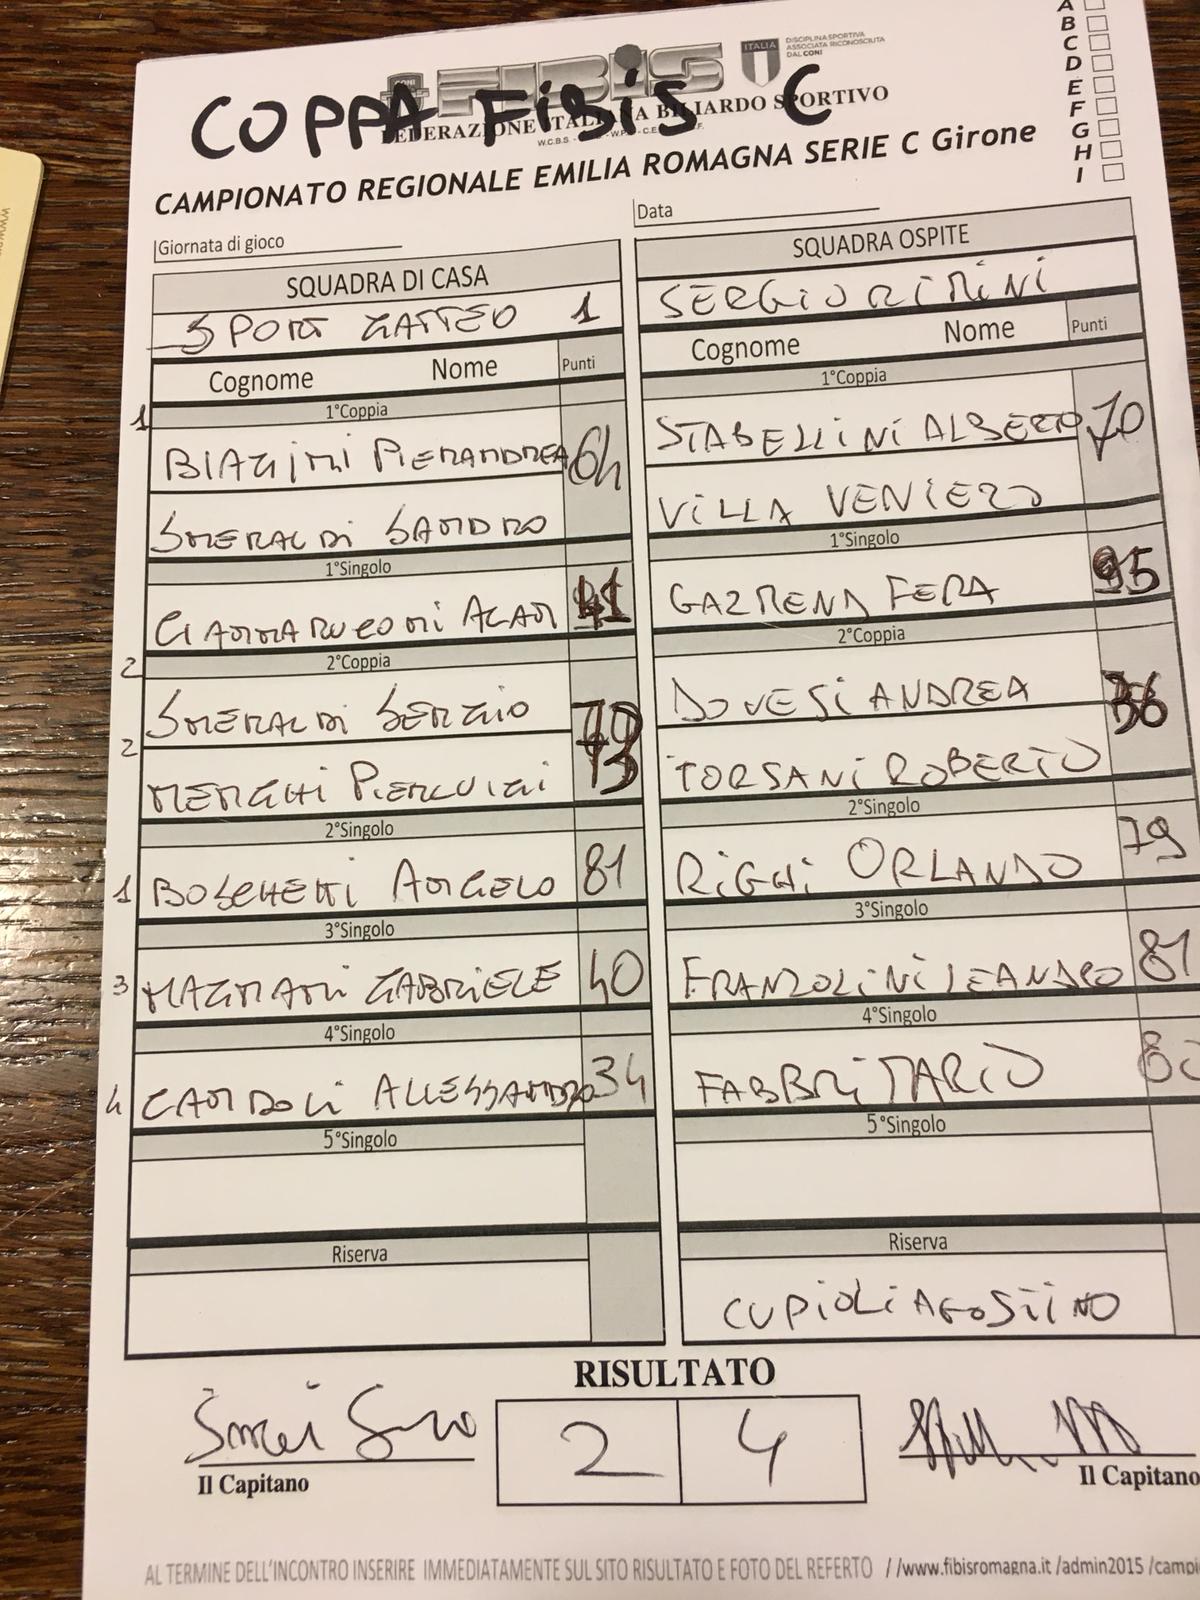 COPPA FIBIS C
FIBIS
CONI
ITALIA
DISCIPLINA SPORTIVA
ASSOCIATA RICONOSCIUTA
DAL CONI
FEDERAZIONE ITALIANA BILIARDO SPORTIVO
CAMPIONATO REGIONALE EMILIA ROMAGNA SERIE C Girone
A
B
C
D
E
F
G
H
I
Giornata di gioco
Data
SQUADRA DI CASA
SQUADRA OSPITE
SPORT GATTEO 1
SERGIO RIMINI
Cognome Nome Punti
Cognome Nome Punti
1°Coppia
1°Coppia
1 BIAGINI PIERANDREA 64
STABELLINI ALBERTO 70
SMERALDI SANDRO
VILLA VENIERO
1°Singolo
1°Singolo
GIANNARUCONI ALAN 41
GAZMEND FERA 95
2°Coppia
2°Coppia
2 SMERALDI SERGIO 73
DOVESI ANDREA 36
2 MENGHI PIERLUIGI
TORSANI ROBERTO
2°Singolo
2°Singolo
1 BOSCHETTI ANGELO 81
RIGHI ORLANDO 79
3°Singolo
3°Singolo
3 MAGNANI GABRIELE 40
FRANZOLINI LEANDRO 81
4°Singolo
4°Singolo
4 CANDOLI ALLESSANDRO 34
FABBRI MARIO 80
5°Singolo
5°Singolo
Riserva
Riserva
CUPIOLI AGOSTINO
RISULTATO
2 4
Il Capitano
Il Capitano
AL TERMINE DELL'INCONTRO INSERIRE IMMEDIATAMENTE SUL SITO RISULTATO E FOTO DEL REFERTO //www.fibisromagna.it /admin2015 /campi